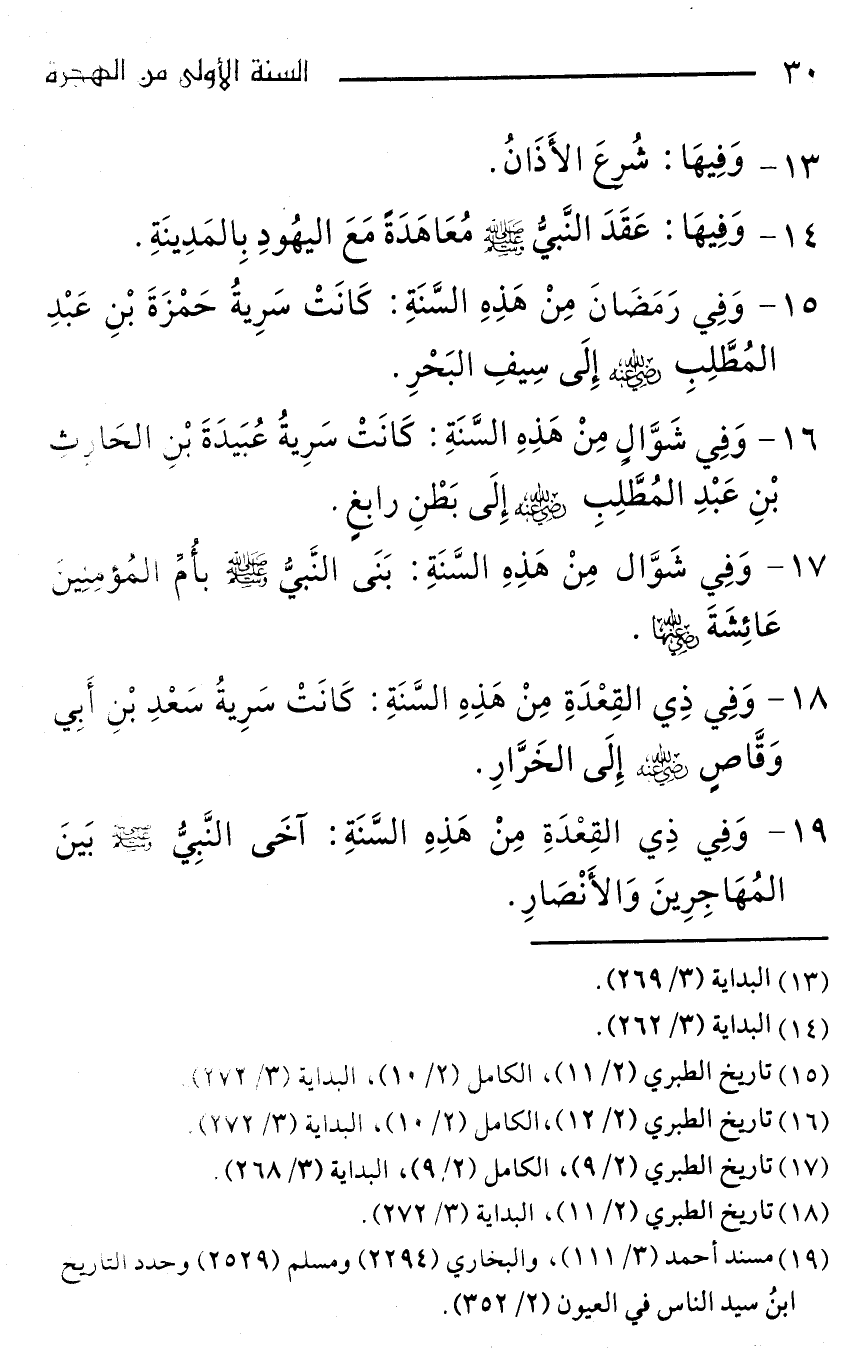 ٣٠ السنة الأولى من الهجرة
١٣- وَفِيهَا: شُرِعَ الأَذَانُ.
١٤- وَفِيهَا: عَقَدَ النَّبِيُّ ﷺ مُعَاهَدَةً مَعَ اليهُودِ بِالمَدِينَةِ.
١٥- وَفِي رَمَضَانَ مِنْ هَذِهِ السَّنَةِ: كَانَتْ سَرِيةُ حَمْزَةَ بْنِ عَبْدِ
المُطَّلِبِ رضي الله عنه إِلَى سِيفِ البَحْرِ.
١٦- وَفِي شَوَّالٍ مِنْ هَذِهِ السَّنَةِ: كَانَتْ سَرِيةُ عُبَيدَةَ بْنِ الحَارِثِ
بْنِ عَبْدِ المُطَّلِبِ رضي الله عنه إِلَى بَطْنِ رابغٍ.
١٧- وَفِي شَوَّال مِنْ هَذِهِ السَّنَةِ: بَنَى النَّبِيُّ ﷺ بأُمِّ المُؤمِنِينَ
عَائِشَةَ رضي الله عنها.
١٨- وَفِي ذِي القِعْدَةِ مِنْ هَذِهِ السَّنَةِ: كَانَتْ سَرِيةُ سَعْدِ بْنِ أَبِي
وَقَّاصٍ رضي الله عنه إِلَى الخَرَّارِ.
١٩- وَفِي ذِي القِعْدَةِ مِنْ هَذِهِ السَّنَةِ: آخَى النَّبِيُّ ﷺ بَينَ
المُهَاجِرِينَ وَالأَنْصَارِ.
(١٣) البداية (٣/ ٢٦٩).
(١٤) البداية (٣/ ٢٦٢).
(١٥) تاريخ الطبري (٢/ ١١)، الكامل (٢/ ١٠)، البداية (٣/ ٢٧٢).
(١٦) تاريخ الطبري (٢/ ١٢)،الكامل (٢/ ١٠)، البداية (٣/ ٢٧٢).
(١٧) تاريخ الطبري (٢/ ٩)، الكامل (٢/ ٩)، البداية (٣/ ٢٦٨).
(١٨) تاريخ الطبري (٢/ ١١)، البداية (٣/ ٢٧٢).
(١٩) مسند أحمد (٣/ ١١١)، والبخاري (٢٢٩٤) ومسلم (٢٥٢٩) وحدد التاريخ
ابنُ سيد الناس في العيون (٢/ ٣٥٢).